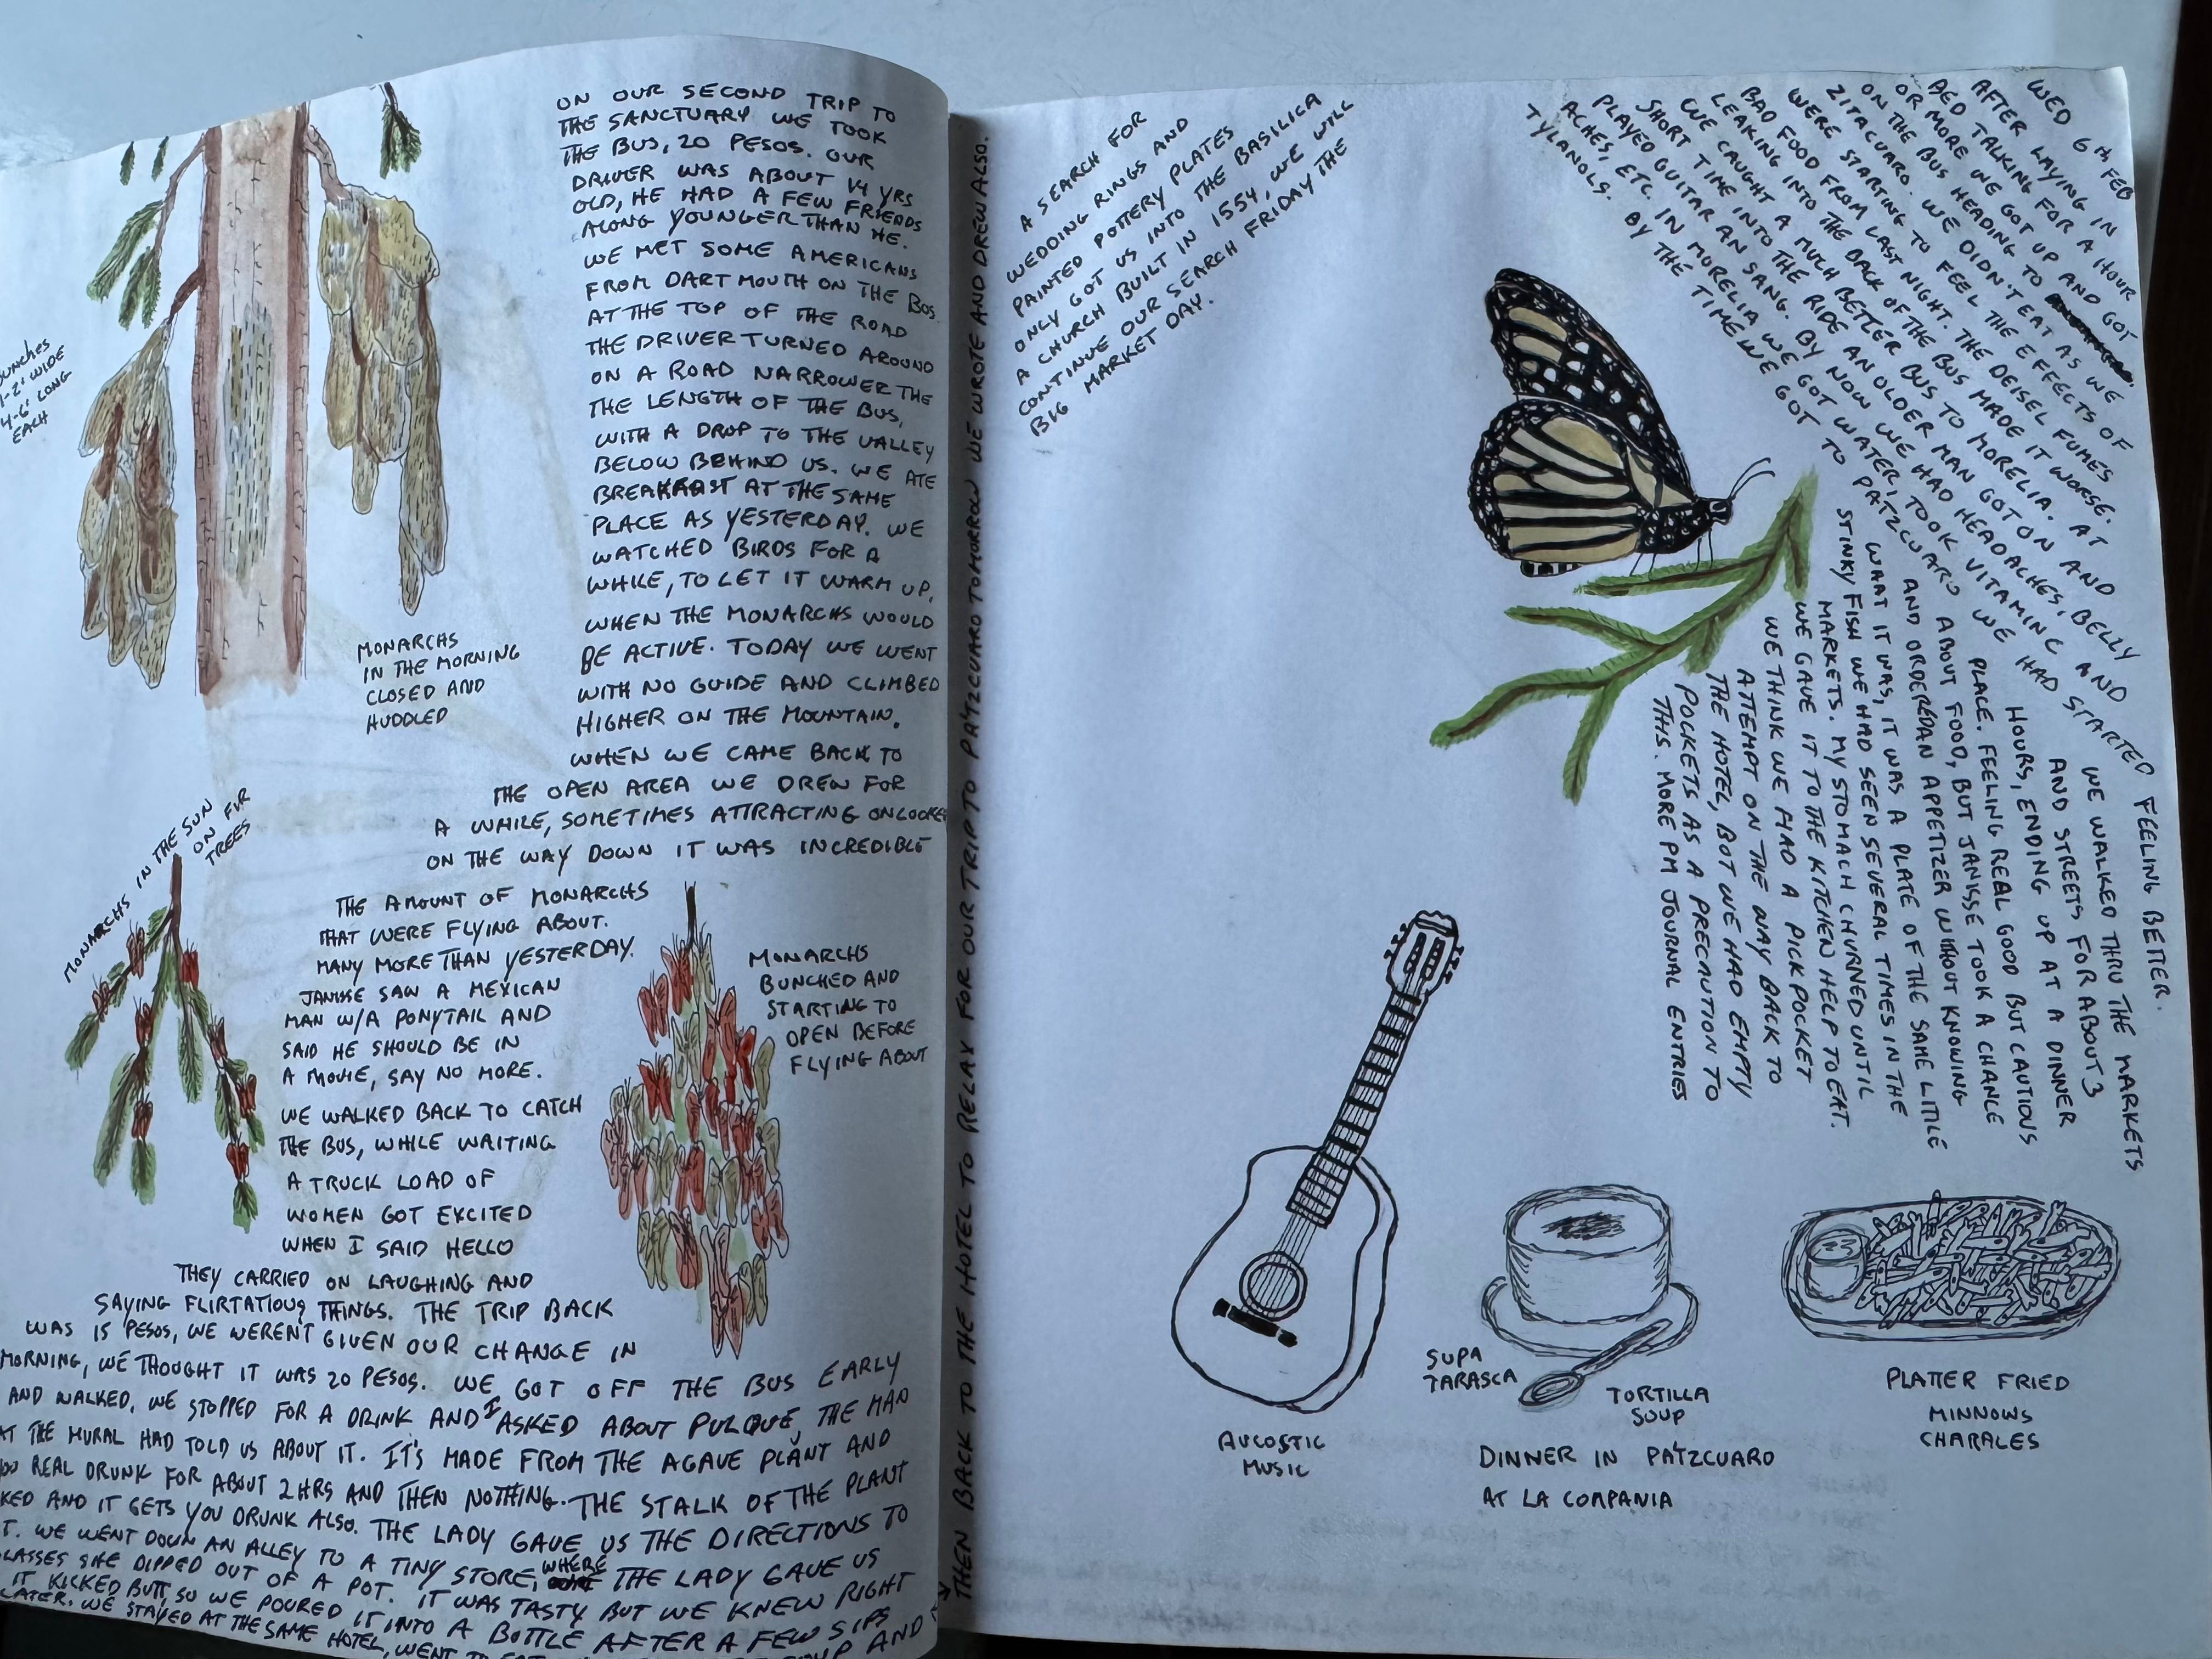 BUNCHES
1-2' WIDE
4-6' LONG
EACH
MONARCHS
IN THE MORNING
CLOSED AND
HUDDLED
MONARCHS IN THE SUN
ON FIR
TREES
MONARCHS
BUNCHED AND
STARTING TO
OPEN BEFORE
FLYING ABOUT
ON OUR SECOND TRIP TO
THE SANCTUARY WE TOOK
THE BUS, 20 PESOS. OUR
DRIVER WAS ABOUT 14 YRS
OLD, HE HAD A FEW FRIENDS
ALONG YOUNGER THAN HE.
WE MET SOME AMERICANS
FROM DARTMOUTH ON THE BUS.
AT THE TOP OF THE ROAD
THE DRIVER TURNED AROUND
ON A ROAD NARROWER THE
THE LENGTH OF THE BUS,
WITH A DROP TO THE VALLEY
BELOW BEHIND US. WE ATE
BREAKFAST AT THE SAME
PLACE AS YESTERDAY. WE
WATCHED BIRDS FOR A
WHILE, TO LET IT WARM UP,
WHEN THE MONARCHS WOULD
BE ACTIVE. TODAY WE WENT
WITH NO GUIDE AND CLIMBED
HIGHER ON THE MOUNTAIN.
WHEN WE CAME BACK TO
THE OPEN AREA WE DREW FOR
A WHILE, SOMETIMES ATTRACTING ONLOOKE
ON THE WAY DOWN IT WAS INCREDIBLE
THE AMOUNT OF MONARCHS
THAT WERE FLYING ABOUT.
MANY MORE THAN YESTERDAY.
JANISSE SAW A MEXICAN
MAN W/A PONYTAIL AND
SAID HE SHOULD BE IN
A MOVIE, SAY NO MORE.
WE WALKED BACK TO CATCH
THE BUS, WHILE WAITING
A TRUCK LOAD OF
WOMEN GOT EXCITED
WHEN I SAID HELLO
THEY CARRIED ON LAUGHING AND
SAYING FLIRTATIOUS THINGS. THE TRIP BACK
WAS 15 PESOS, WE WEREN'T GIVEN OUR CHANGE IN
MORNING, WE THOUGHT IT WAS 20 PESOS. WE GOT OFF THE BUS EARLY
AND WALKED, WE STOPPED FOR A DRINK AND I ASKED ABOUT PULQUE, THE MAN
AT THE MURAL HAD TOLD US ABOUT IT. IT'S MADE FROM THE AGAVE PLANT AND
REAL DRUNK FOR ABOUT 2 HRS AND THEN NOTHING. THE STALK OF THE PLANT
KED AND IT GETS YOU DRUNK ALSO. THE LADY GAVE US THE DIRECTIONS TO
T. WE WENT DOWN AN ALLEY TO A TINY STORE, WHERE THE LADY GAVE US
LASSES SHE DIPPED OUT OF A POT. IT WAS TASTY BUT WE KNEW RIGHT
IT KICKED BUTT, SO WE POURED IT INTO A BOTTLE AFTER A FEW SIPS
LATER. WE STAYED AT THE SAME HOTEL, WENT SOUP AND
THEN BACK TO THE HOTEL TO RELAX FOR OUR TRIP TO PATZCUARO TOMORROW WE WROTE AND DREW ALSO.
A SEARCH FOR
WEDDING RINGS AND
PAINTED POTTERY PLATES
ONLY GOT US INTO THE BASILICA
A CHURCH BUILT IN 1554, WE WILL
CONTINUE OUR SEARCH FRIDAY THE
BIG MARKET DAY.
WED 6TH FEB
AFTER LAYING IN
BED TALKING FOR A HOUR
OR MORE WE GOT UP AND GOT
ON THE BUS HEADING TO
ZITACUARO. WE DIDN'T EAT AS WE
WERE STARTING TO FEEL THE EFFECTS OF
BAD FOOD FROM LAST NIGHT. THE DEISEL FUMES
LEAKING INTO THE BACK OF THE BUS MADE IT WORSE.
WE CAUGHT A MUCH BETTER BUS TO MORELIA. AT
SHORT TIME INTO THE RIDE AN OLDER MAN GOT ON AND
PLAYED GUITAR AN SANG. BY NOW WE HAD HEADACHES, BELLY
ACHES, ETC. IN MORELIA WE GOT WATER, TOOK VITAMIN C AND
TYLANOLS. BY THE TIME WE GOT TO PATZCUARO WE HAD STARTED FEELING BETTER.
WE WALKED THRU THE MARKETS
AND STREETS FOR ABOUT 3
HOURS, ENDING UP AT A DINNER
PLACE. FEELING REAL GOOD BUT CAUTIOUS
ABOUT FOOD, BUT JANISSE TOOK A CHANCE
AND ORDERED AN APPETIZER WITHOUT KNOWING
WHAT IT WAS, IT WAS A PLATE OF THE SAME LITTLE
STINKY FISH WE HAD SEEN SEVERAL TIMES IN THE
MARKETS. MY STOMACH CHURNED UNTIL
WE GAVE IT TO THE KITCHEN HELP TO EAT.
WE THINK WE HAD A PICK POCKET
ATTEMPT ON THE WAY BACK TO
THE HOTEL, BUT WE HAD EMPTY
POCKETS AS A PRECAUTION TO
THIS. MORE PM JOURNAL ENTRIES
AUCOSTIC
MUSIC
SUPA
TARASCA
TORTILLA
SOUP
DINNER IN PATZCUARO
AT LA COMPANIA
PLATTER FRIED
MINNOWS
CHARALES